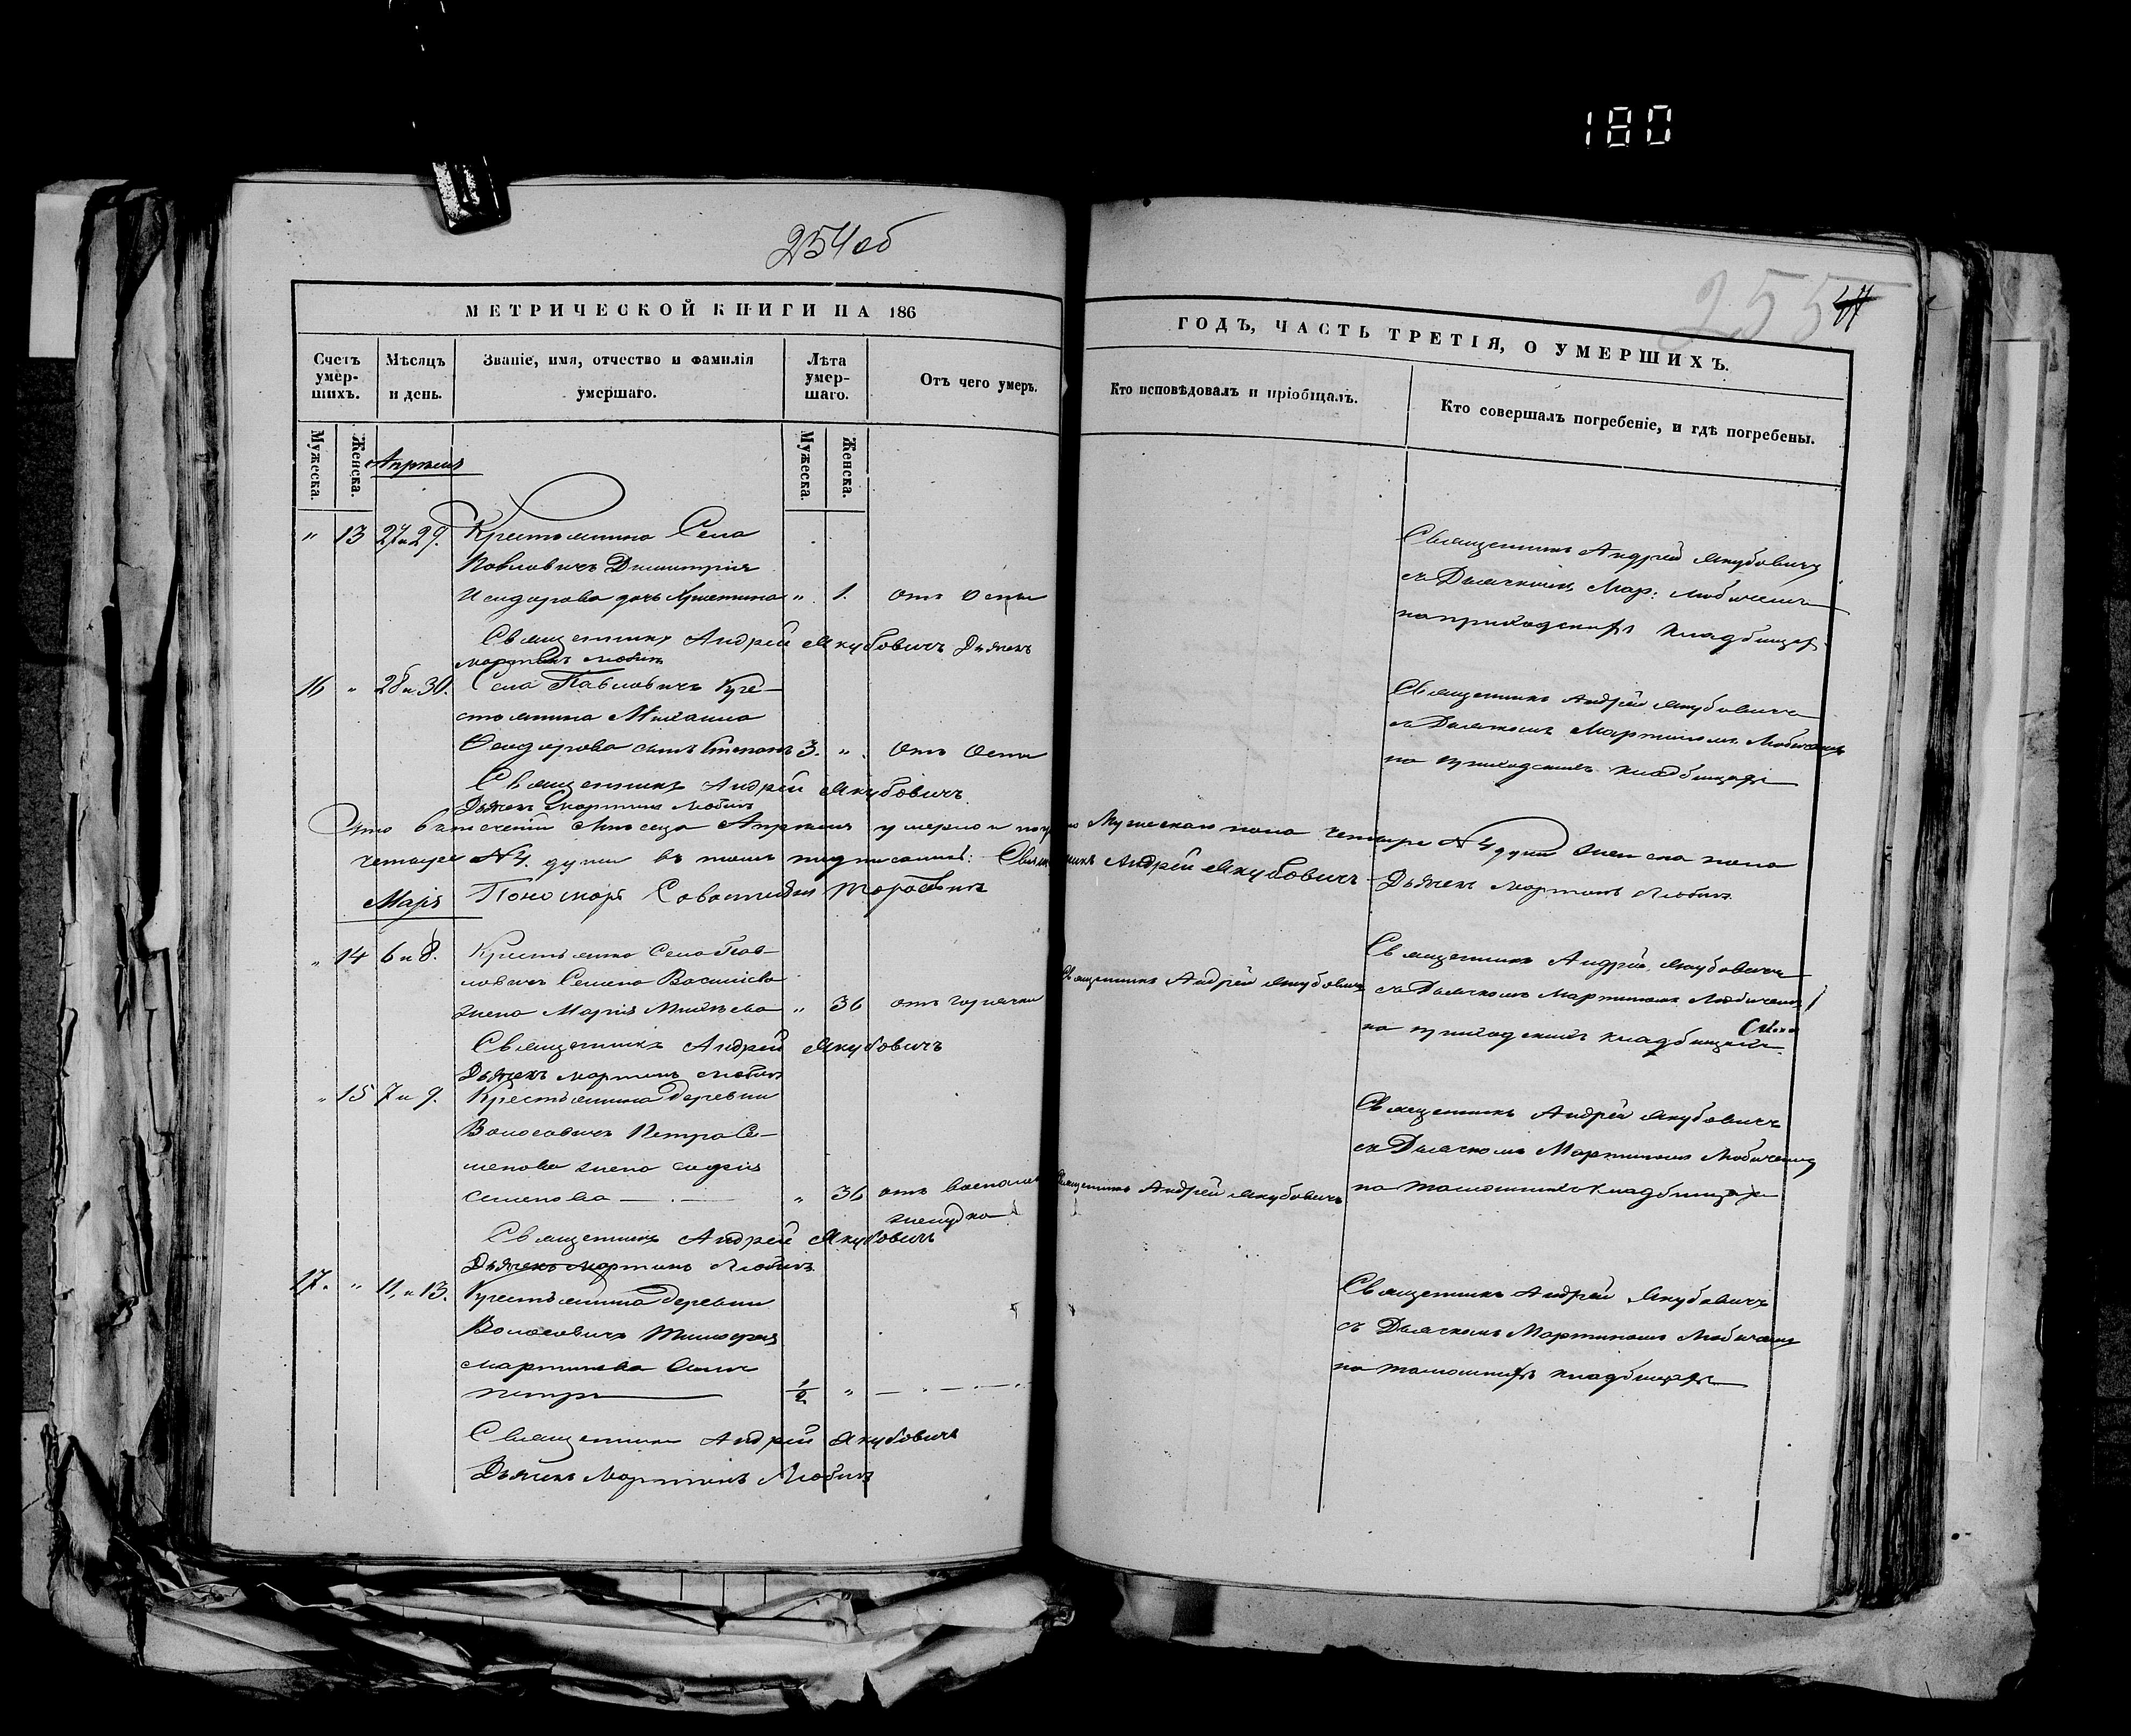 180
254об
255
МЕТРИЧЕСКОЙ КНИГИ НА 186
ГОДЪ, ЧАСТЬ ТРЕТІЯ, О УМЕРШИХЪ.
Счетъ умер-шихъ.
Мѣсяцъ и день.
Званіе, имя, отчество и фамилія умершаго.
Лѣта умер-шаго.
Отъ чего умеръ.
Кто исповѣдовалъ и пріобщалъ.
Кто совершалъ погребеніе, и гдѣ погребены.
Мужеска.
Женска.
Мужеска.
Женска.
Апрѣль
" 13 27 и 29. Крестьянина Села
Павловичъ Димитрія
дочь Христина " 1. отъ Оспы
Священникъ Андрей Якубовичъ
съ Дьячкомъ Мар:
на приходскихъ кладбищахъ
Священникъ Андрей Якубовичъ Дьячекъ
Мартинъ
16 " 28 и 30. Села Павловичъ Кре-
стьянина Михаила
сынъ Степанъ 3. " отъ Оспы
Священникъ Андрей Якубовичъ
съ Дьячкомъ Мартиномъ
на приходскихъ кладбищахъ
Священникъ Андрей Якубовичъ
Дьячекъ Мартинъ
Что въ теченіи Мѣсяца Апрѣля умерло и Мужескаго пола четыре № 4 души Женска пола
четыре № 4. души въ томъ подписались: Священникъ Андрей Якубовичъ Дьячекъ Мартинъ
Маія
Пономарь
" 14 6 и 8. Крестьянина Села Пав-
ловичъ Семена Василіева
жена Марія " 36 отъ горячки
Священникъ Андрей Якубовичъ
Священникъ Андрей Якубовичъ
съ Дьячкомъ Мартиномъ
на приходскихъ кладбищахъ
Священникъ Андрей Якубовичъ
Дьячекъ Мартинъ
" 15 7 и 9. Крестьянина деревни
Волосовичъ Петра Се-
менова жена Софія
Семенова " 36 отъ воспален
желудка
Священникъ Андрей Якубовичъ
Священникъ Андрей Якубовичъ
съ Дьячкомъ Мартиномъ
на кладбищахъ
Священникъ Андрей Якубовичъ
Дьячекъ Мартинъ
17. " 11, и 13. Крестьянина деревни
Волосовичъ Тимофея
Мартинова сынъ
Петръ ½ "
Священникъ Андрей Якубовичъ
съ Дьячкомъ Мартиномъ
на кладбищахъ
Священникъ Андрей Якубовичъ
Дьячекъ Мартинъ